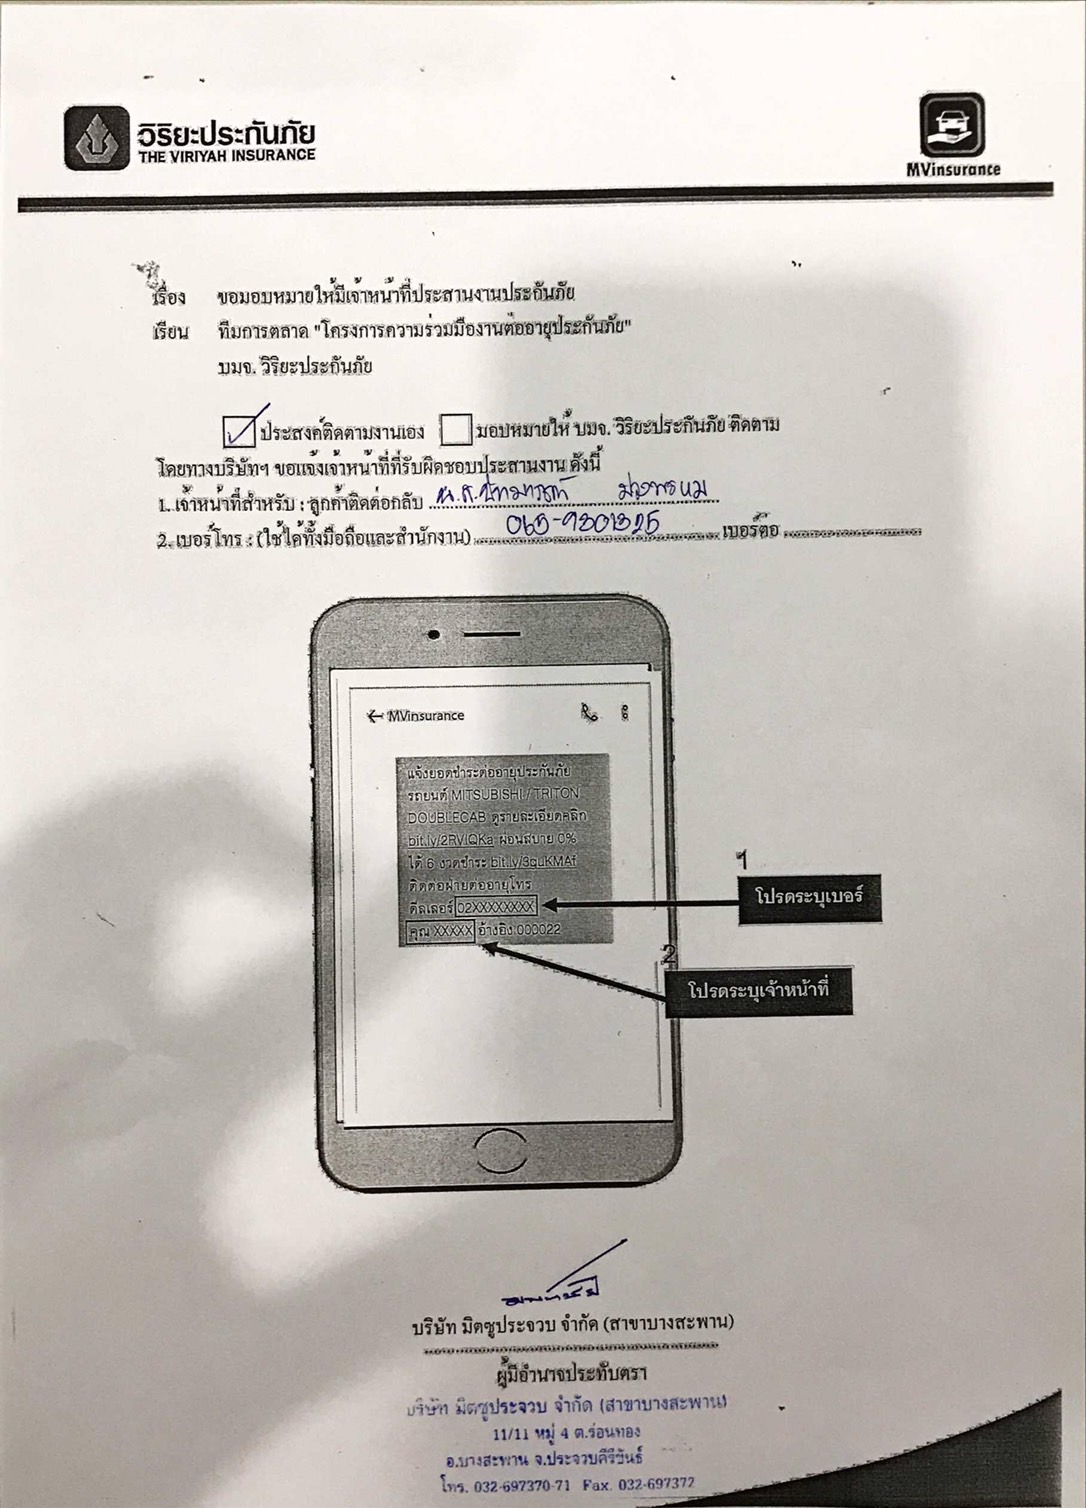 วิริยะประกันภัย
THE VIRIYAH INSURANCE
MVinsurance
เรื่อง ขอมอบหมายให้มีเจ้าหน้าที่ประสานงานประกันภัย
เรียน ทีมการตลาด "โครงการความร่วมมืองานต่ออายุประกันภัย"
บมจ. วิริยะประกันภัย
ประสงค์ติดตามงานเอง มอบหมายให้ บมจ. วิริยะประกันภัย ติดตาม
โดยทางบริษัทฯ ขอแจ้งเจ้าหน้าที่ที่รับผิดชอบประสานงาน ดังนี้
1. เจ้าหน้าที่สำหรับ : ลูกค้าติดต่อกลับ น.ส.
2. เบอร์โทร : (ใช้ได้ทั้งมือถือและสำนักงาน) 065-9301325 เบอร์ต่อ
MVinsurance
แจ้งยอดชำระต่ออายุประกันภัย
รถยนต์ MITSUBISHI / TRITON
DOUBLECAB ดูรายละเอียดคลิก
bit.ly/2RVlQKa ผ่อนสบาย 0%
ได้ 6 งวดชำระ bit.ly/3guKMAf
ติดต่อฝ่ายต่ออายุโทร
ดีลเลอร์ 02XXXXXXXX
คุณ XXXXX อ้างอิง 000022
1
โปรดระบุเบอร์
2
โปรดระบุเจ้าหน้าที่
บริษัท มิตซูประจวบ จำกัด (สาขาบางสะพาน)
ผู้มีอำนาจประทับตรา
บริษัท มิตซูประจวบ จำกัด (สาขาบางสะพาน)
11/11 หมู่ 4 ต.ร่อนทอง
อ.บางสะพาน จ.ประจวบคีรีขันธ์
โทร. 032-697370-71 Fax. 032-697372